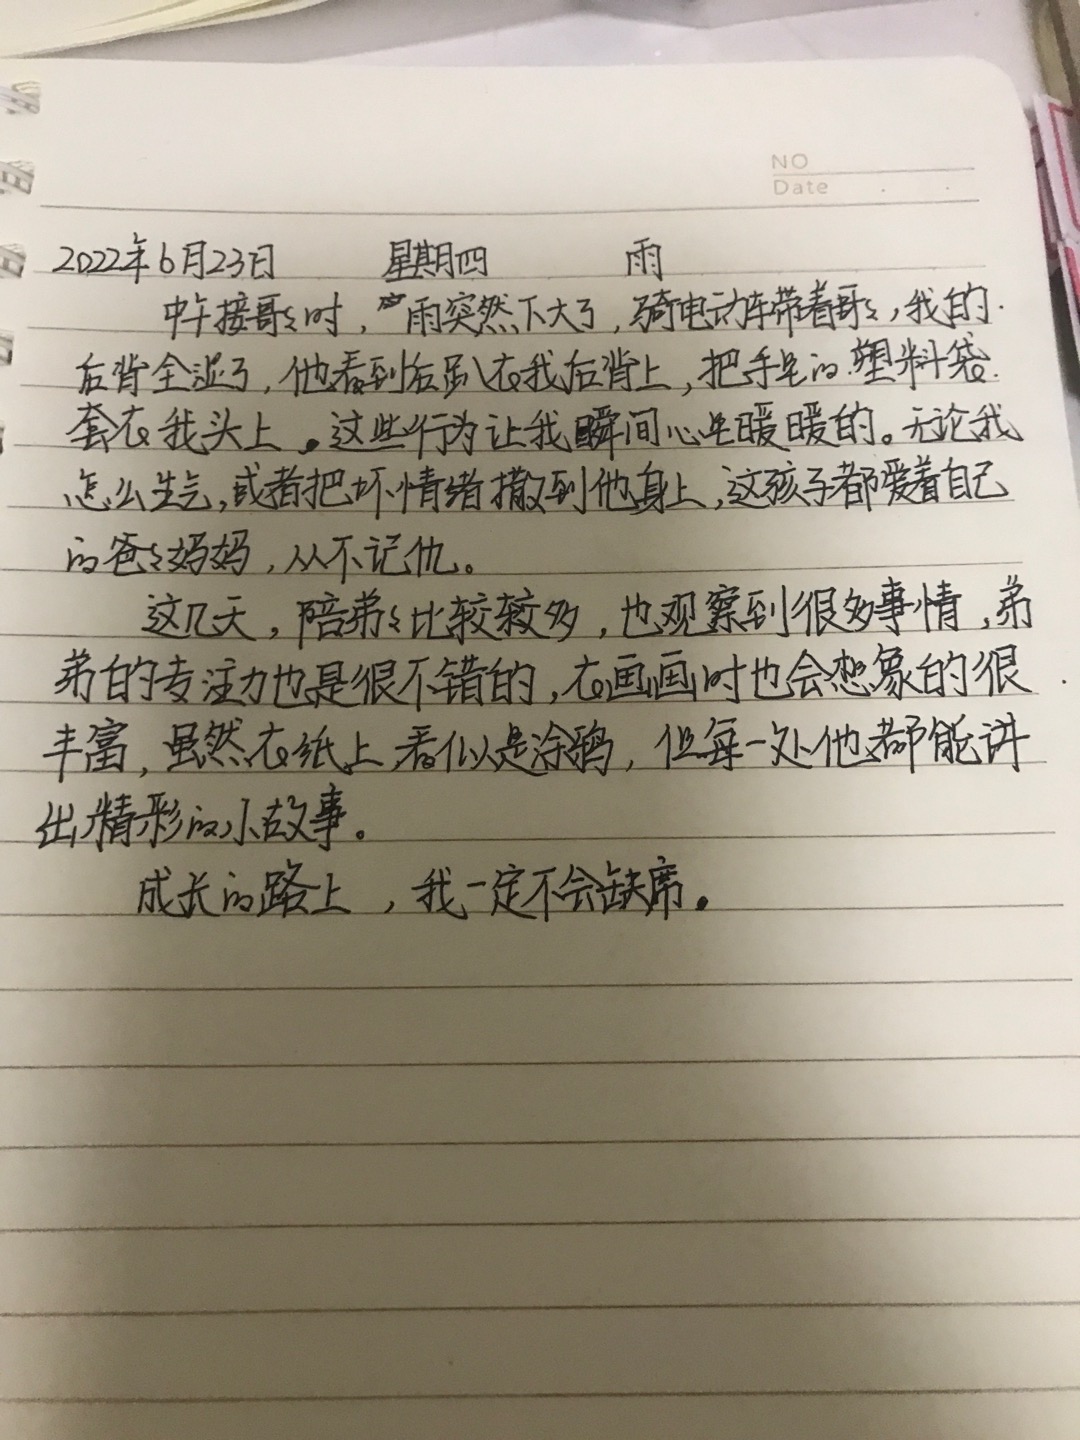 NO
Date
2022年6月23日 星期四 雨
中午接哥哥时，雨突然下大了，骑电动车带着哥哥，我的
后背全湿了，他看到后趴在我后背上，把手里的塑料袋
套在我头上。这些行为让我瞬间心里暖暖的。无论我
怎么生气，或者把坏情绪撒到他身上，这孩子都爱着自己
的爸爸妈妈，从不记仇。
这几天，陪弟弟比较较多，也观察到很多事情，弟
弟的专注力也是很不错的，在画画时也会想象的很
丰富，虽然在纸上看似是涂鸦，但每一处他都能讲
出精彩的小故事。
成长的路上，我一定不会缺席。